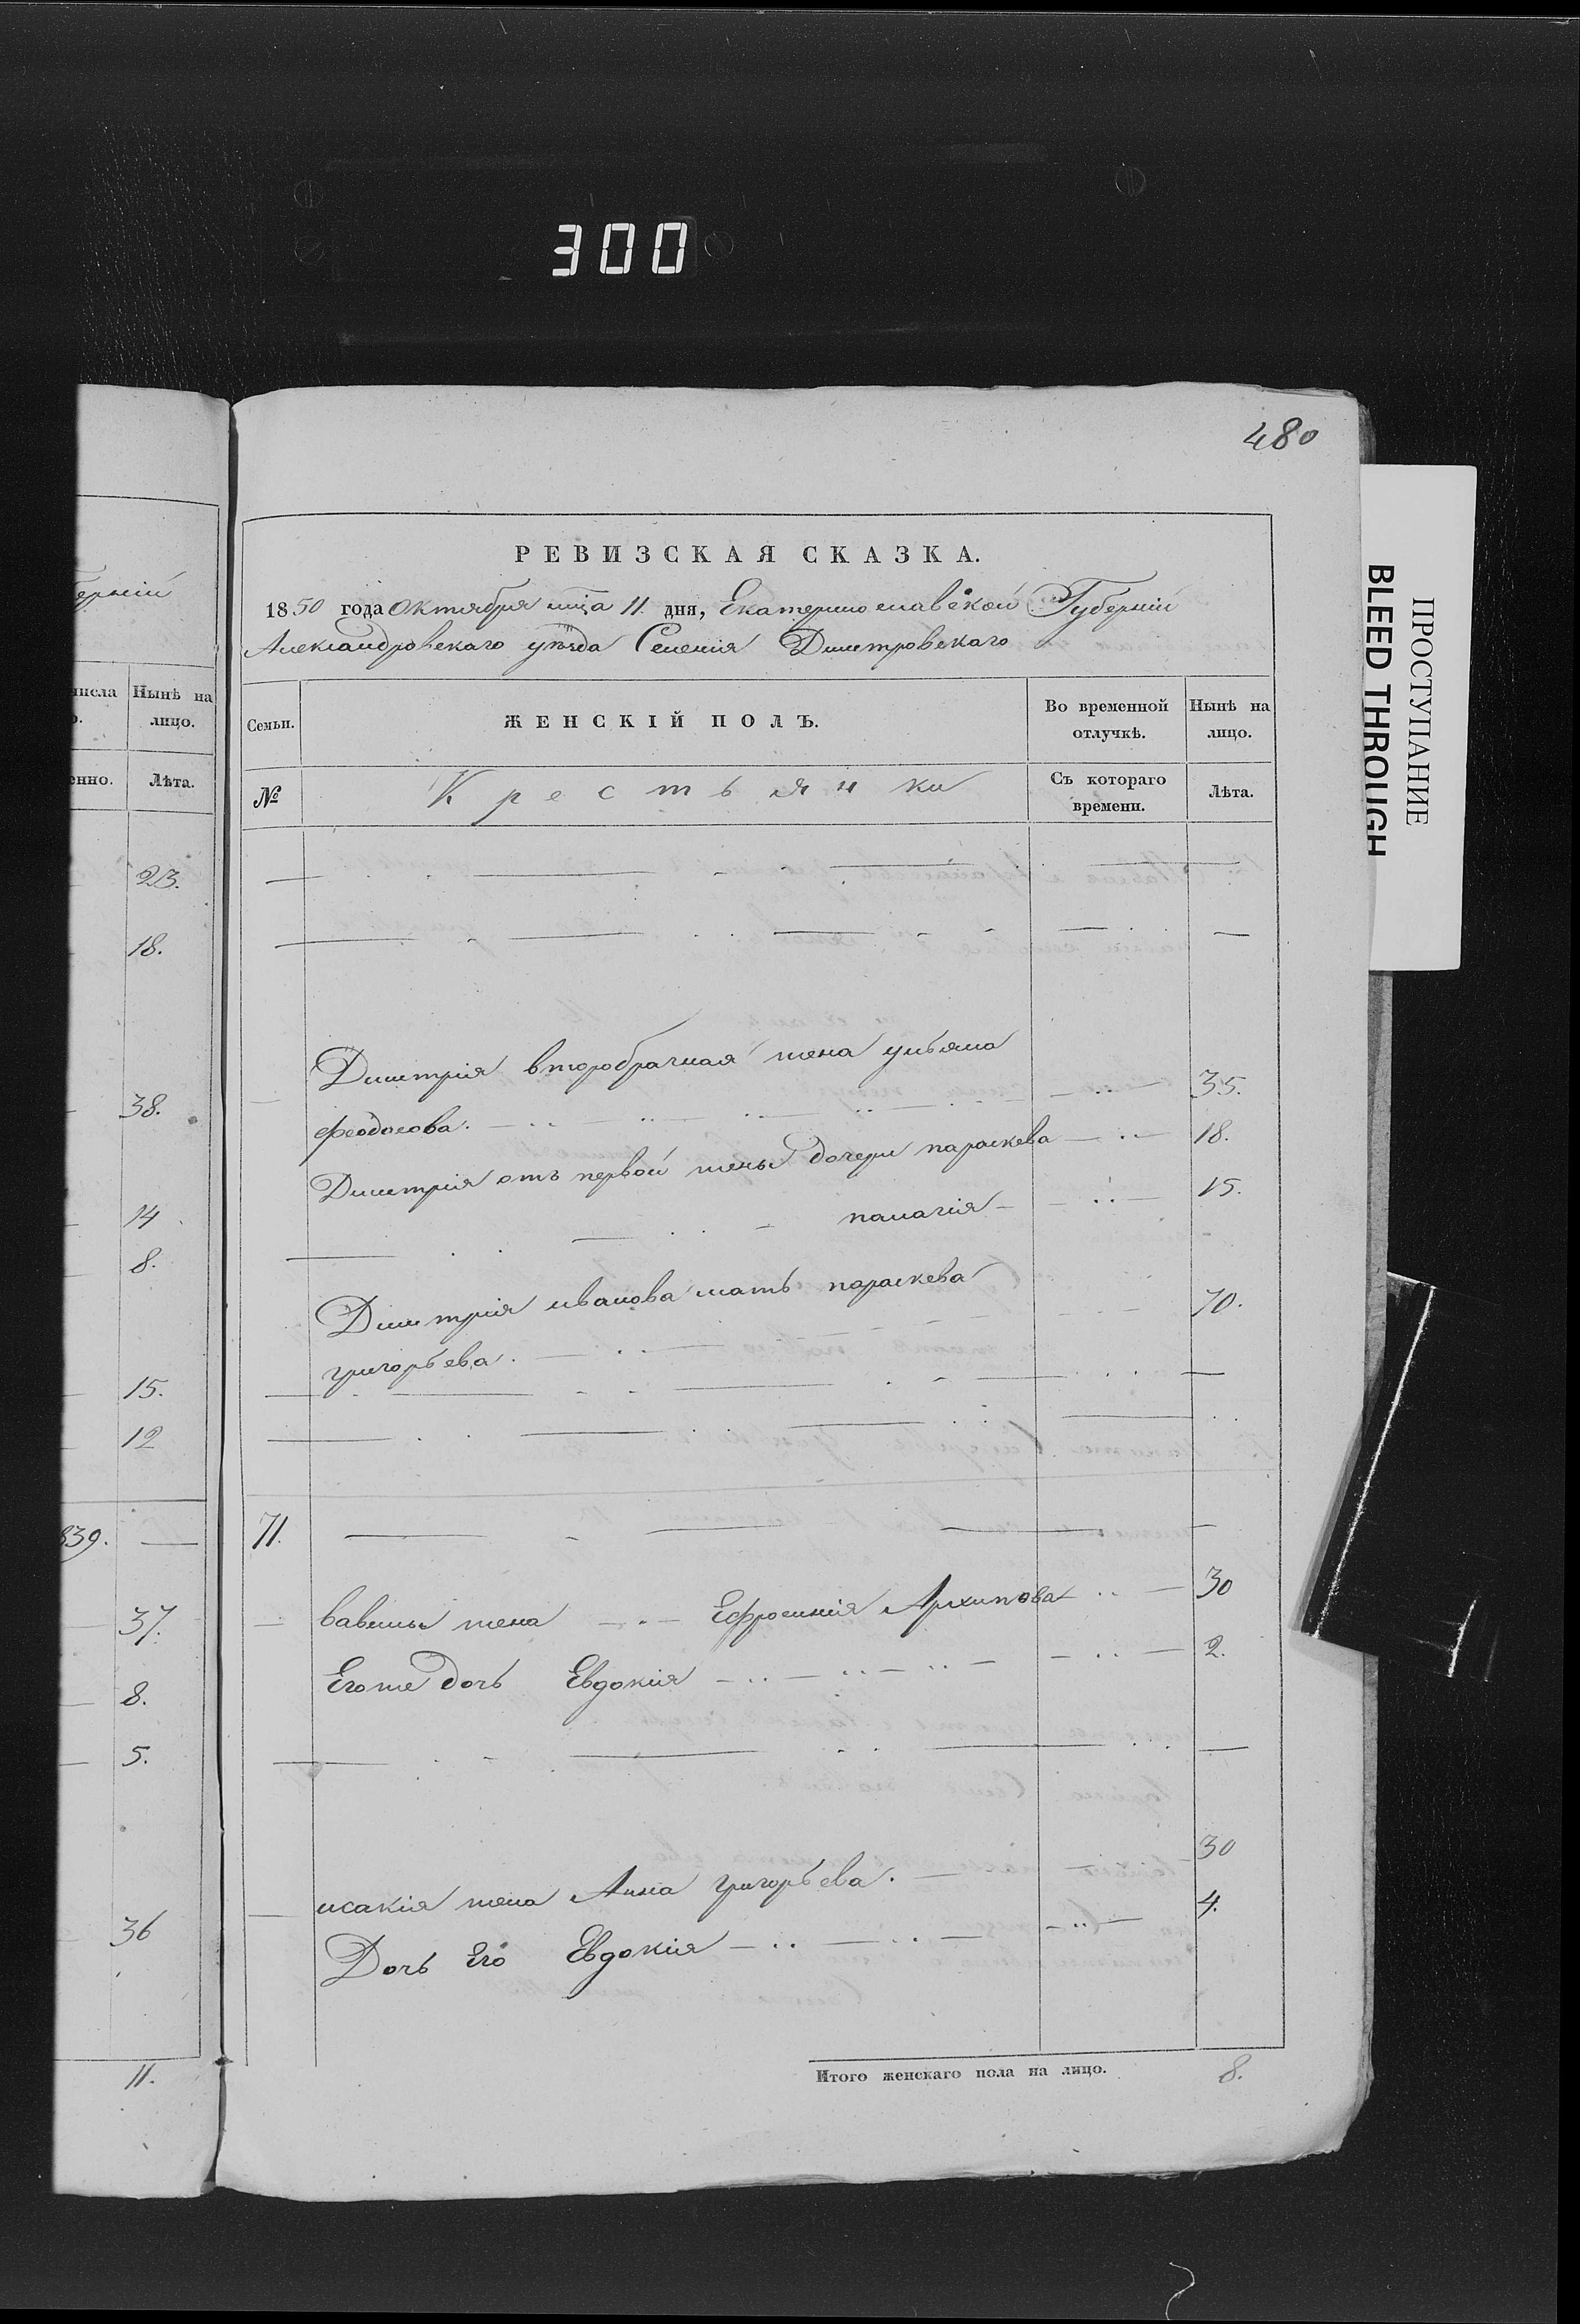 300
480
РЕВИЗСКАЯ СКАЗКА.
1850 года Октября мца 11 дня, Екатеринославской Губерніи
Александровскаго уѣзда Селенія Дмитровскаго
Семьи.
ЖЕНСКІЙ ПОЛЪ.
Во временной отлучкѣ.
Нынѣ на лицо.
№
Крестьянки
Съ котораго времени.
Лѣта.
Дмитрія второбрачная жена ульяна
феодосова. 35.
Дмитрія отъ первой жены дочери параскева 18.
палагія 15.
Дмитрія иванова мать параскева
григорьева. 70.
71.
вавилы жена Ефросинія Архипова 30
Егоже дочь Евдокія 2.
исакія жена Анна григорьева. 30
Дочь Его Евдокія 4.
Итого женскаго пола на лицо. 8.
ерніи
числа
Нынѣ на лицо.
енно.
Лѣта.
23.
18.
38.
14
8.
15.
12
839.
37.
8.
5.
36
11.
ПРОСТУПАНИЕ
BLEED THROUGH